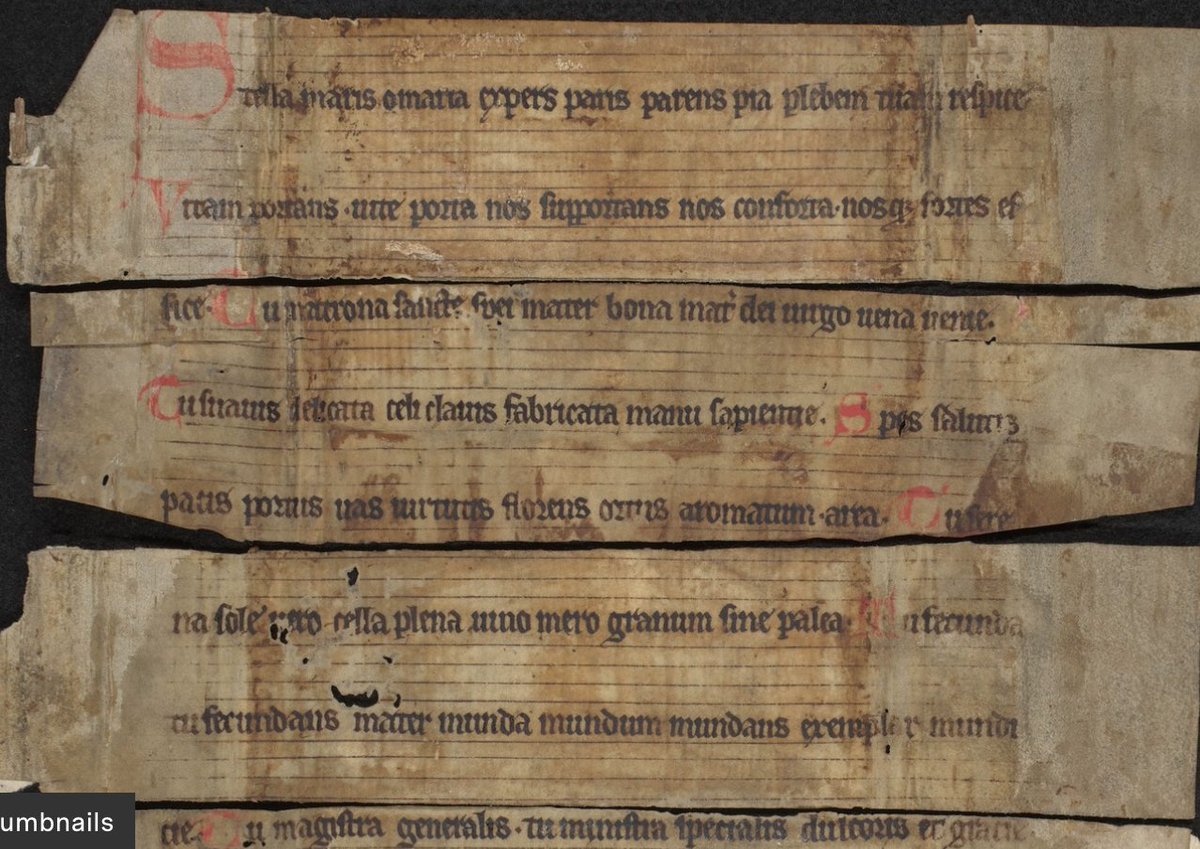 Stella maris o maria expers paris parens pia plebem tuam respice
Vitam portans · uite porta nos supportans nos conforta · nosqꝫ fortes ef
fice · Tu matrona sancte spei mater bona mat᷑ dei uirgo uena uenie.
Tu suauis delicata celi clauis fabricata manu sapientie. Spes salutis
pacis portus uas uirtutis florens ortus aromatum · area · Tu sere
na sole uero cella plena uino mero granum sine palea · Tu fecunda
tu fecundans mater munda mundum mundans exemplar mundi
cie · Tu magistra generalis · tu ministra specialis dulcoris et gratie
umbnails